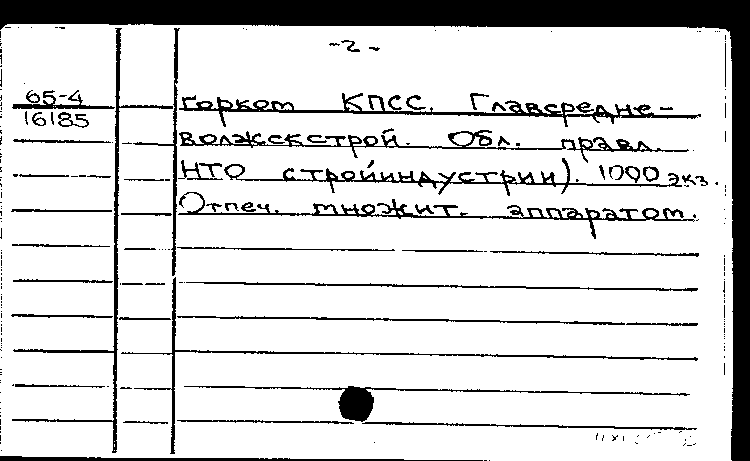 -2-
65-4
16185
горком КПСС. Главсредне-
волжскстрой. Обл. правл.
НТО стройиндустрии). 1000 экз.
Отпеч. множит. аппаратом.